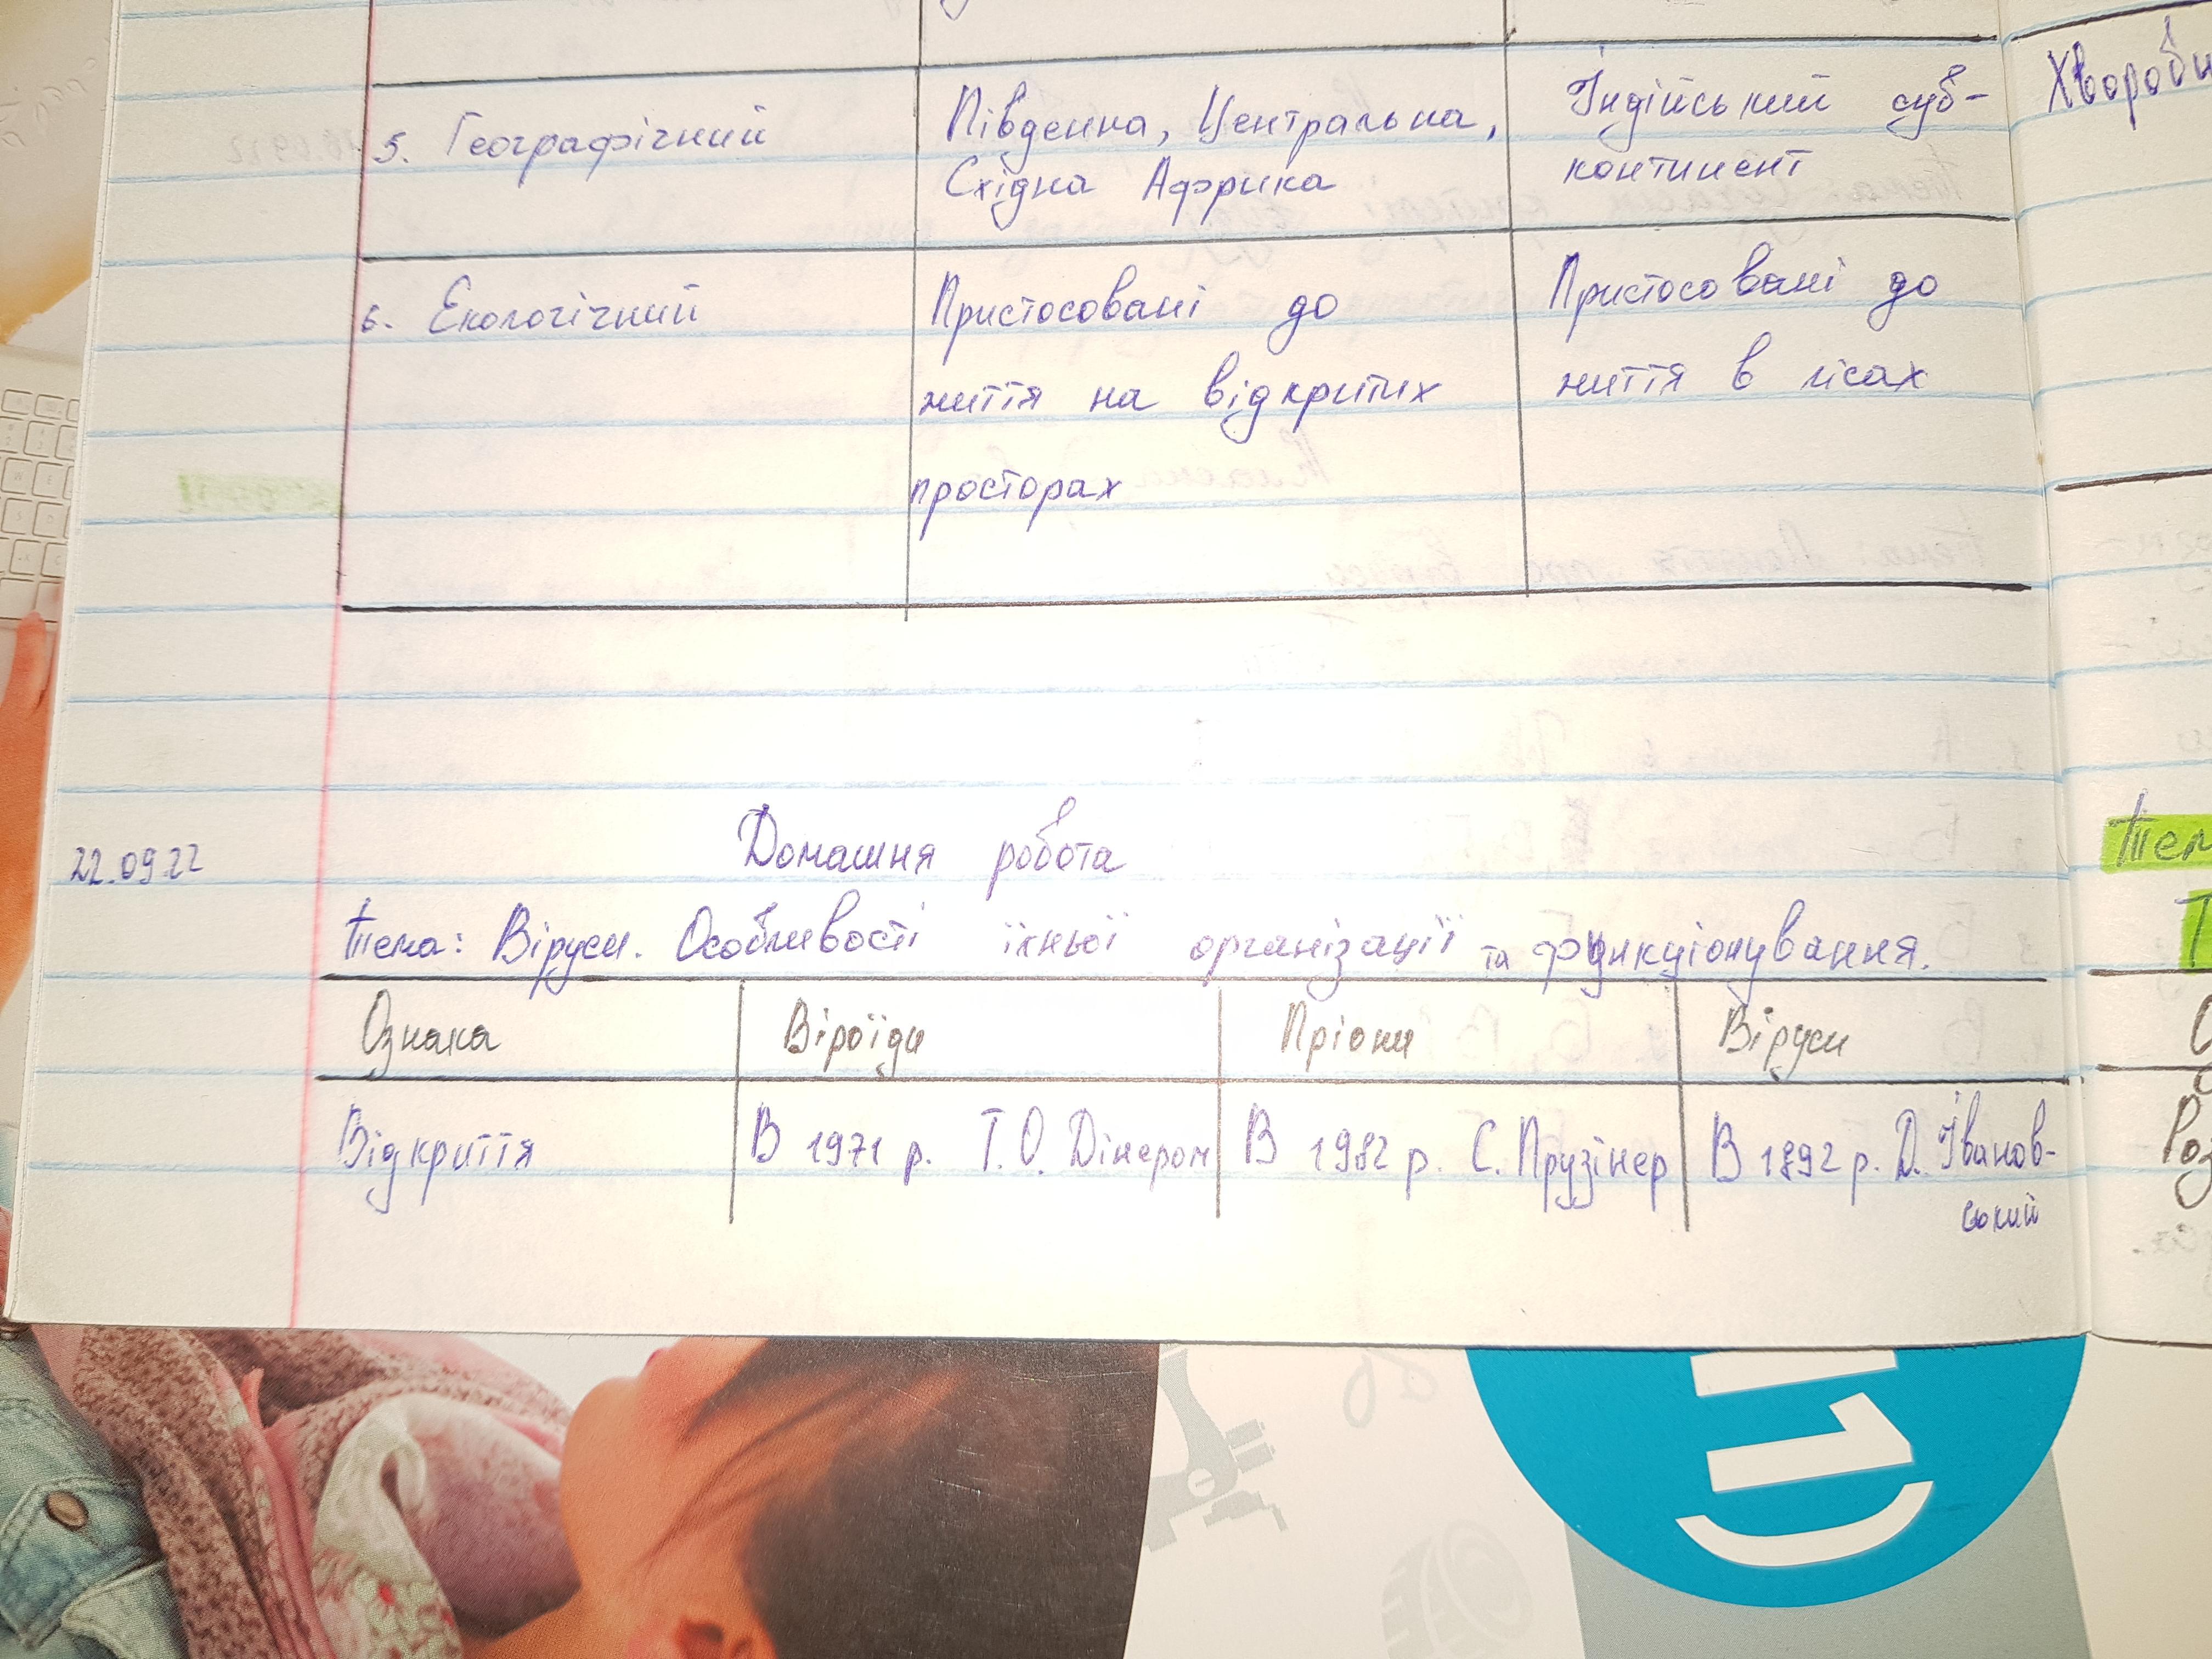 5. Географічний Південна, Центральна, Індійський суб-
Східна Африка континент
6. Екологічний Пристосовані до Пристосовані до
життя на відкритих життя в лісах
просторах
22.09.22 Домашня робота
Тема: Віруси. Особливості їхньої організації та функціонування.
Ознака Віроїди Пріони Віруси
Відкриття В 1971 р. Т.О. Дінером В 1982 р. С. Прузінер В 1892 р. Д. Іванов-
ський
Хвороби
11)